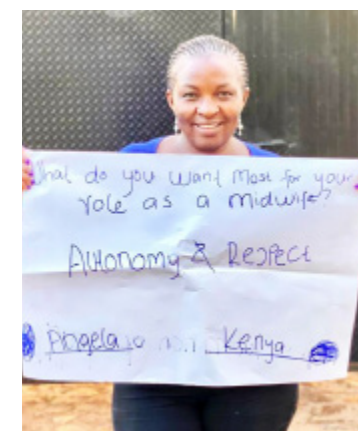 What do you want Most for your
role as a midwife?
Autonomy & Respect
Angela Kenya